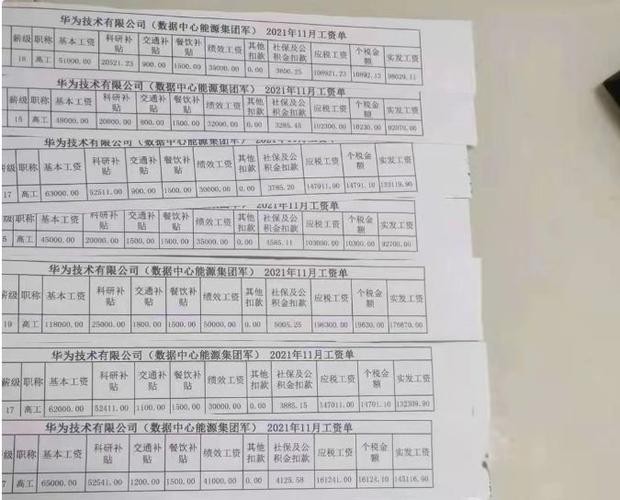 华为技术有限公司（数据中心能源集团军）2021年11月工资单
薪级 职称 基本工资 科研补贴 交通补贴 餐饮补贴 绩效工资 其他扣款 社保及公积金扣款 应税工资 个税金额 实发工资
18 高工 51000.00 20521.23 900.00 1500.00 35000.00 0.00 108921.23 10892.12 98029.11
华为技术有限公司（数据中心能源集团军）2021年11月工资单
薪级 职称 基本工资 科研补贴 交通补贴 餐饮补贴 绩效工资 其他扣款 社保及公积金扣款 应税工资 个税金额 实发工资
15 高工 48000.00 20000.00 800.00 1500.00 32000.00 0.00 3285.45 102300.00 10230.00 92070.00
薪级 职称 基本工资 科研补贴 交通补贴 餐饮补贴 绩效工资 其他扣款 社保及公积金扣款 应税工资 个税金额 实发工资
17 高工 63000.00 52511.00 900.00 1500.00 30000.00 0.00 3785.20 147911.00 14791.10 133119.90
职称 基本工资 科研补贴 交通补贴 餐饮补贴 绩效工资 其他扣款 社保及公积金扣款 应税工资 个税金额 实发工资
5 高工 45000.00 20000.00 1500.00 1500.00 35000.00 0.00 4585.11 103000.00 10300.00 92700.00
华为技术有限公司（数据中心能源集团军）2021年11月工资单
薪级 职称 基本工资 科研补贴 交通补贴 餐饮补贴 绩效工资 其他扣款 社保及公积金扣款 应税工资 个税金额 实发工资
19 高工 118000.00 25000.00 1800.00 1500.00 50000.00 0.00 5005.25 196300.00 19630.00 176670.00
华为技术有限公司（数据中心能源集团军）2021年11月工资单
薪级 职称 基本工资 科研补贴 交通补贴 餐饮补贴 绩效工资 其他扣款 社保及公积金扣款 应税工资 个税金额 实发工资
17 高工 62000.00 52411.00 1100.00 1500.00 30000.00 0.00 3885.15 147011.00 14701.10 132309.90
华为技术有限公司（数据中心能源集团军）2021年11月工资单
薪级 职称 基本工资 科研补贴 交通补贴 餐饮补贴 绩效工资 其他扣款 社保及公积金扣款 应税工资 个税金额 实发工资
7 高工 65000.00 52541.00 1200.00 1500.00 41000.00 0.00 4125.58 161241.00 16124.10 145116.90